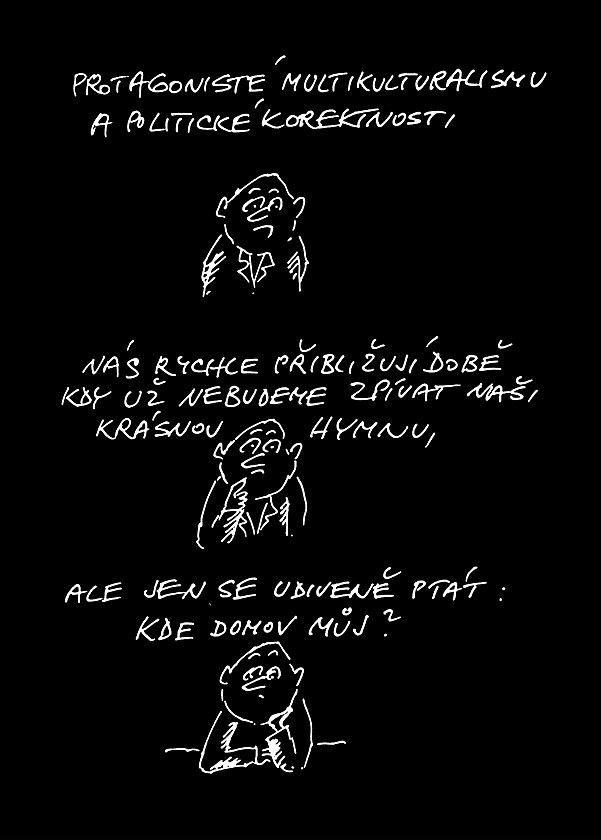 PROTAGONISTÉ MULTIKULTURALISMU
A POLITICKÉ KOREKTNOSTI
NÁS RYCHLE PŘIBLIŽUJÍ DOBĚ
KDY UŽ NEBUDEME ZPÍVAT NAŠI,
KRÁSNOU HYMNU,
ALE JEN SE UDIVENĚ PTÁT:
KDE DOMOV MŮJ?